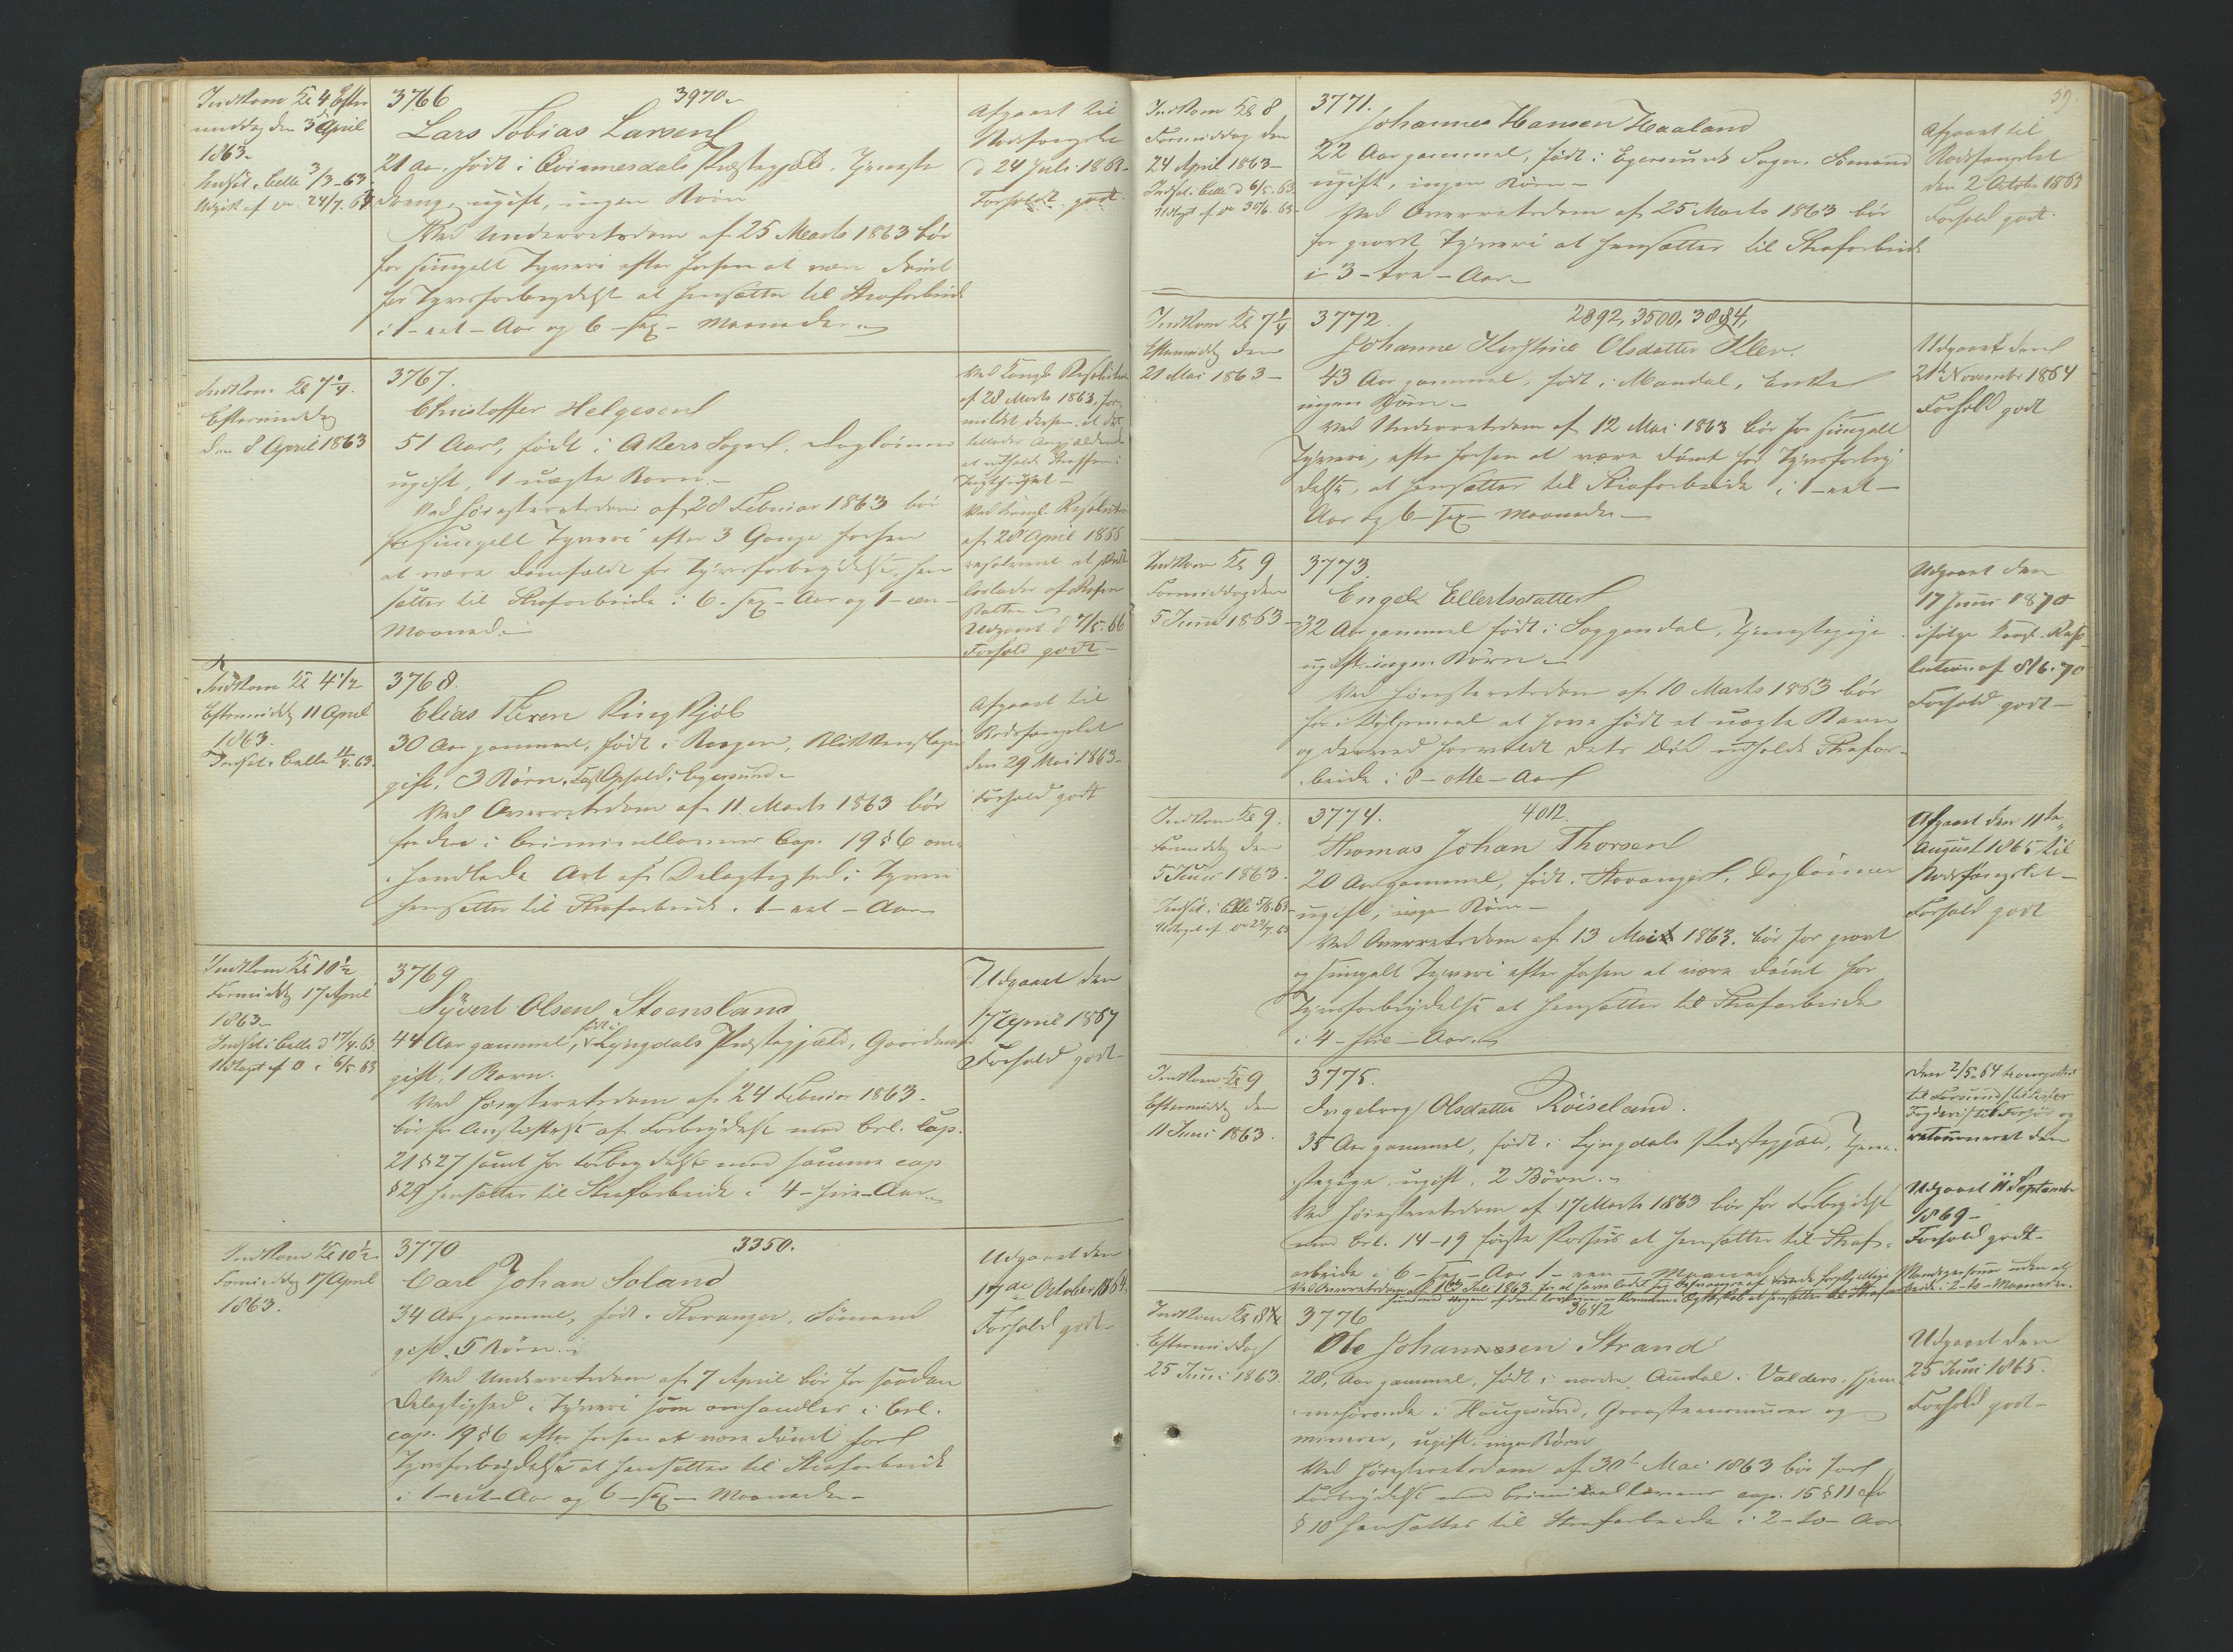 Indkom Kl 4 Efter
middag den 3 April
1863.
Indsat i Celle 3/3-63.
Udgik af do 24/7. 63
3766 3970.
Lars Tobias Larsen
21 Aar, født i Qvinnesdals Præstegjæld, Tjeneste
dreng, ugift, ingen Børn
Ved Underretsdom af 25 Marts 1863 bör
for simpelt Tyveri efter forhen at være dömt
for Tyvsforbrydelse at hensættes til Strafarbeide
i 1-eet-Aar og 6-sex-Maaneder
Afgaaet til
Bodsfængslet
d 24 Juli 1863-
Forhold godt.
Indkom Kl 7 1/4.
Eftermiddag
den 8 April 1863
3767.
Christoffer Helgesen
51 Aar, født i Akers Sogn, Daglönner
ugift, 1 uægte Barn.-
Ved Höiesteretsdom af 28 Februar 1863 bör
for simpelt Tyveri efter 3 Gange forhen
at være domfældt for Tyvsforbrydelse, hen
sættes til Strafarbeide i 6-sex-Aar og 1-een-
Maaned.-
Ved Kongl. Resolution
af 28 Marts 1863, for
mildet derhen, at det
tillades Angjældende
at udholde Straffen i
Tugthuset-
Ved Kongl. Resolution
af 28 April 1866
resolveret at
löslades af Straf
Udgaaet d 7/5-66
Forhold godt-
Indkom Kl 4 1/2
Eftermiddag 11 April
1863.
Indsat i Celle 11/4. 63.
3768.
Elias Ringkjöb
30 Aar gammel, født i Bergen, Blikkenslager
gift, 3 Börn, sidst Ophold i Egersund-
Ved Overretsdom af 11 Marts 1863 bör
for den i Criminalloven Cap. 19 § 6 om-
handlede Art af Delagtighed i Tyveri
hensættes til Strafarbeide i 1-eet-Aar
Afgaaet til
Bodsfængslet
den 29 Mai 1863-
Forhold godt
Indkom Kl 10 1/2
Formiddag 17 April
1863-
Indsat i Celle d 17/4. 63
Udtaget af d i 6/5 63
3769
Syvert Olsen Steensland
44 Aar gammel, født i Lyngdals Præstegjæld, Gaardmand
gift, 1 Barn.
Ved Höiesteretsdom af 24 Februar 1863.
bör for Anstiftelse af Forbrydelse mod Crl. Cap.
21 § 27 samt for Forbrydelse mod samme Cap
§ 29 hensættes til Strafarbeide i 4-fire-Aar
Udgaaet den
17 April 1867
Forhold godt-
Indkom Kl 10 1/2
Formiddag 17 April
1863.
3770 3350.
Carl Johan Soland
34 Aar gammel, født i Stavanger, Sömand
gift, 5 Börn.-
Ved Underretsdom af 7 April bör for saadan
Delagtighed i Tyveri som omhandles i Crl.
cap. 19 § 6 efter forhen at være dömt for
Tyvsforbrydelse at hensættes til Strafarbeide
i 1-eet-Aar og 6-sex-Maaneder-
Udgaaet den
17de October 1864
Forhold godt-
39.
Indkom Kl 8
Formiddag den
24 April 1863-
Indsat i Celle d 6/5. 63
Udtaget af do 30/6. 63-
3771.
Johannes Hansen Haaland
22 Aar gammel, født i Egersunds Sogn, Sömand
ugift, ingen Börn-
Ved Overretsdom af 25 Marts 1863 bör
for groft Tyveri at hensættes til Strafarbeide
i 3-tre-Aar-
Afgaaet til
Bodsfængslet
den 2 Octobr 1863
Forhold godt.
Indkom Kl 7 1/4
Eftermiddag den
21 Mai 1863-
3772. 2892, 3500, 3884,
Johanne Kirstine Olsdatter Klev.
43 Aar gammel, født i Mandal, Enke
ingen Börn-
Ved Underretsdom af 12 Mai 1863 bör for simpelt
Tyveri, efter forhen at være dömt for Tyvsforbry
delse, at hensættes til Strafarbeide i 1-eet-
Aar og 6-sex-Maaneder-
Udgaaet den
21de November 1864
Forhold godt
Indkom Kl 9
Formiddag den
5 Juni 1863-
3773
Engel Ellertsdatter
32 Aar gammel født i Soggendal, Tjenestepige
ugift, ingen Börn-
Ved Höiesteretsdom af 10 Marts 1863 bör
for i Dölgsmaal at have født et uægte Barn
og derved forvoldt dets Död udholde Strafar-
beide i 8-otte-Aar
Udgaaet den
17 Juni 1870
ifölge Kongl. Reso
lution af 8/6.70
Forhold godt-
Indkom Kl 9.
Formiddag den
5 Juni 1863.
Indsat i Celle 5/6. 63-
Udtaget af do 23/7. 63
3774. 4012.
Thomas Johan Thorsen
20 Aar gammel, født i Stavanger, Daglönner
ugift, ingen Börn-
Ved Overretsdom af 13 Mai 1863. bör for groft
og simpelt Tyveri efter forhen at være dömt for
Tyvsforbrydelse at hensættes til Strafarbeide
i 4-fire-Aar.
Afgaaet den 11te
August 1865 til
Bodsfængslet-
Forhold godt
Indkom Kl 9
Eftermiddag den
11 Juni 1863.
3775.
Ingeborg Olsdatter Röiseland.
35 Aar gammel, født i Lyngdals Præstegjæld, Tjene-
stepige, ugift, 2 Börn.-
Ved Höiesteretsdom af 17 Marts 1863 bör for Forbrydelse
mod Crl. 14-19 förste Passus at hensættes til Straf-
arbeide i 6-sex-Aar 1-een-Maaned
Ved Overretsdom af 16 Juli 1863. for at have ladet sig besvangre af forskjellige Mandspersoner uden at
med nogen af dem Ægteskab at hensættes til Strafarbeide i 2-to-Maaneder.
Den 2/5. 64 transporteret
til Farsund til Lister
Fogderi til Forhör og
retourneret den
Udgaaet 11 September
1869-
Forhold godt-
Indkom Kl 8
Eftermiddag
25 Juni 1863.
3776 3642
Ole Johannesen Strand
28, Aar gammel, født i nordre Aurdal i Valders, hjem-
mehörende i Haugesund, Graasteensmurer og
minerer, ugift, ingen Börn
Ved Höiesteretsdom af 30te Mai 1863 bör for
Forbrydelse mod Criminalloven cap. 15 § 11 cfr
§ 10 hensættes til Strafarbeide i 2-to-Aar
Udgaaet den
25 Juni 1865.
Forhold godt-